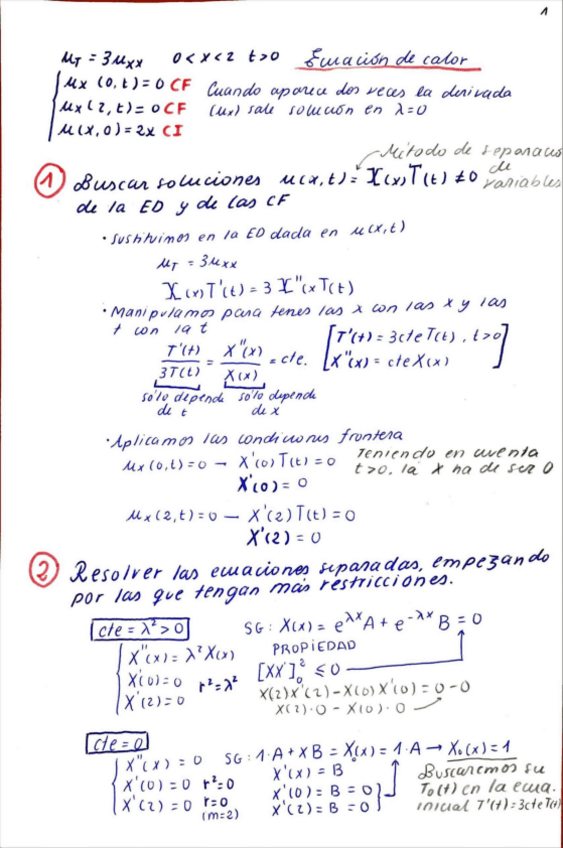 1
u_T = 3u_xx 0<x<2 t>0 Ecuación de calor
u_x (0,t) = 0 CF
Cuando aparece dos veces la derivada
u_x (2,t) = 0 CF
(u_x) sale solución en λ=0
u(x,0) = 2x CI
Método de separación
de
variables
① Buscar soluciones u(x,t) = X(x)T(t) ≠ 0
de la ED y de las CF
• Sustituimos en la ED dada en u(x,t)
u_T = 3u_xx
X(x)T'(t) = 3 X''(x T(t)
• Manipulamos para tenes las x con las x y las
t con la t
T'(t)/3T(t) = X''(x)/X(x) = cte. [T'(t) = 3cte T(t), t>0
X''(x) = cte X(x)]
sólo depende sólo depende
de t de x
• Aplicamos las condiciones frontera
u_x (0,t) = 0 — X'(0) T(t) = 0
Teniendo en cuenta
t>0, la X ha de ser 0
X'(0) = 0
u_x (2,t) = 0 — X'(2) T(t) = 0
X'(2) = 0
② Resolver las ecuaciones separadas, empezando
por las que tengan más restricciones.
cte = λ² > 0 SG: X(x) = e^λx A + e^-λx B = 0
X''(x) = λ² X(x) PROPIEDAD
X'(0) = 0 r² = λ² [XX']₀² ≤ 0
X'(2) = 0 X(2)X'(2) - X(0)X'(0) = 0 - 0
X(2)·0 - X(0)·0
cte = 0
X''(x) = 0 SG: 1·A + xB = X₀(x) = 1·A → X₀(x) = 1
X'(0) = 0 r² = 0 X'(x) = B
X'(2) = 0 r = 0 X'(0) = B = 0
(m=2) X'(2) = B = 0
Buscaremos su
T₀(t) en la ecua.
inicial T'(t) = 3cte T(t)